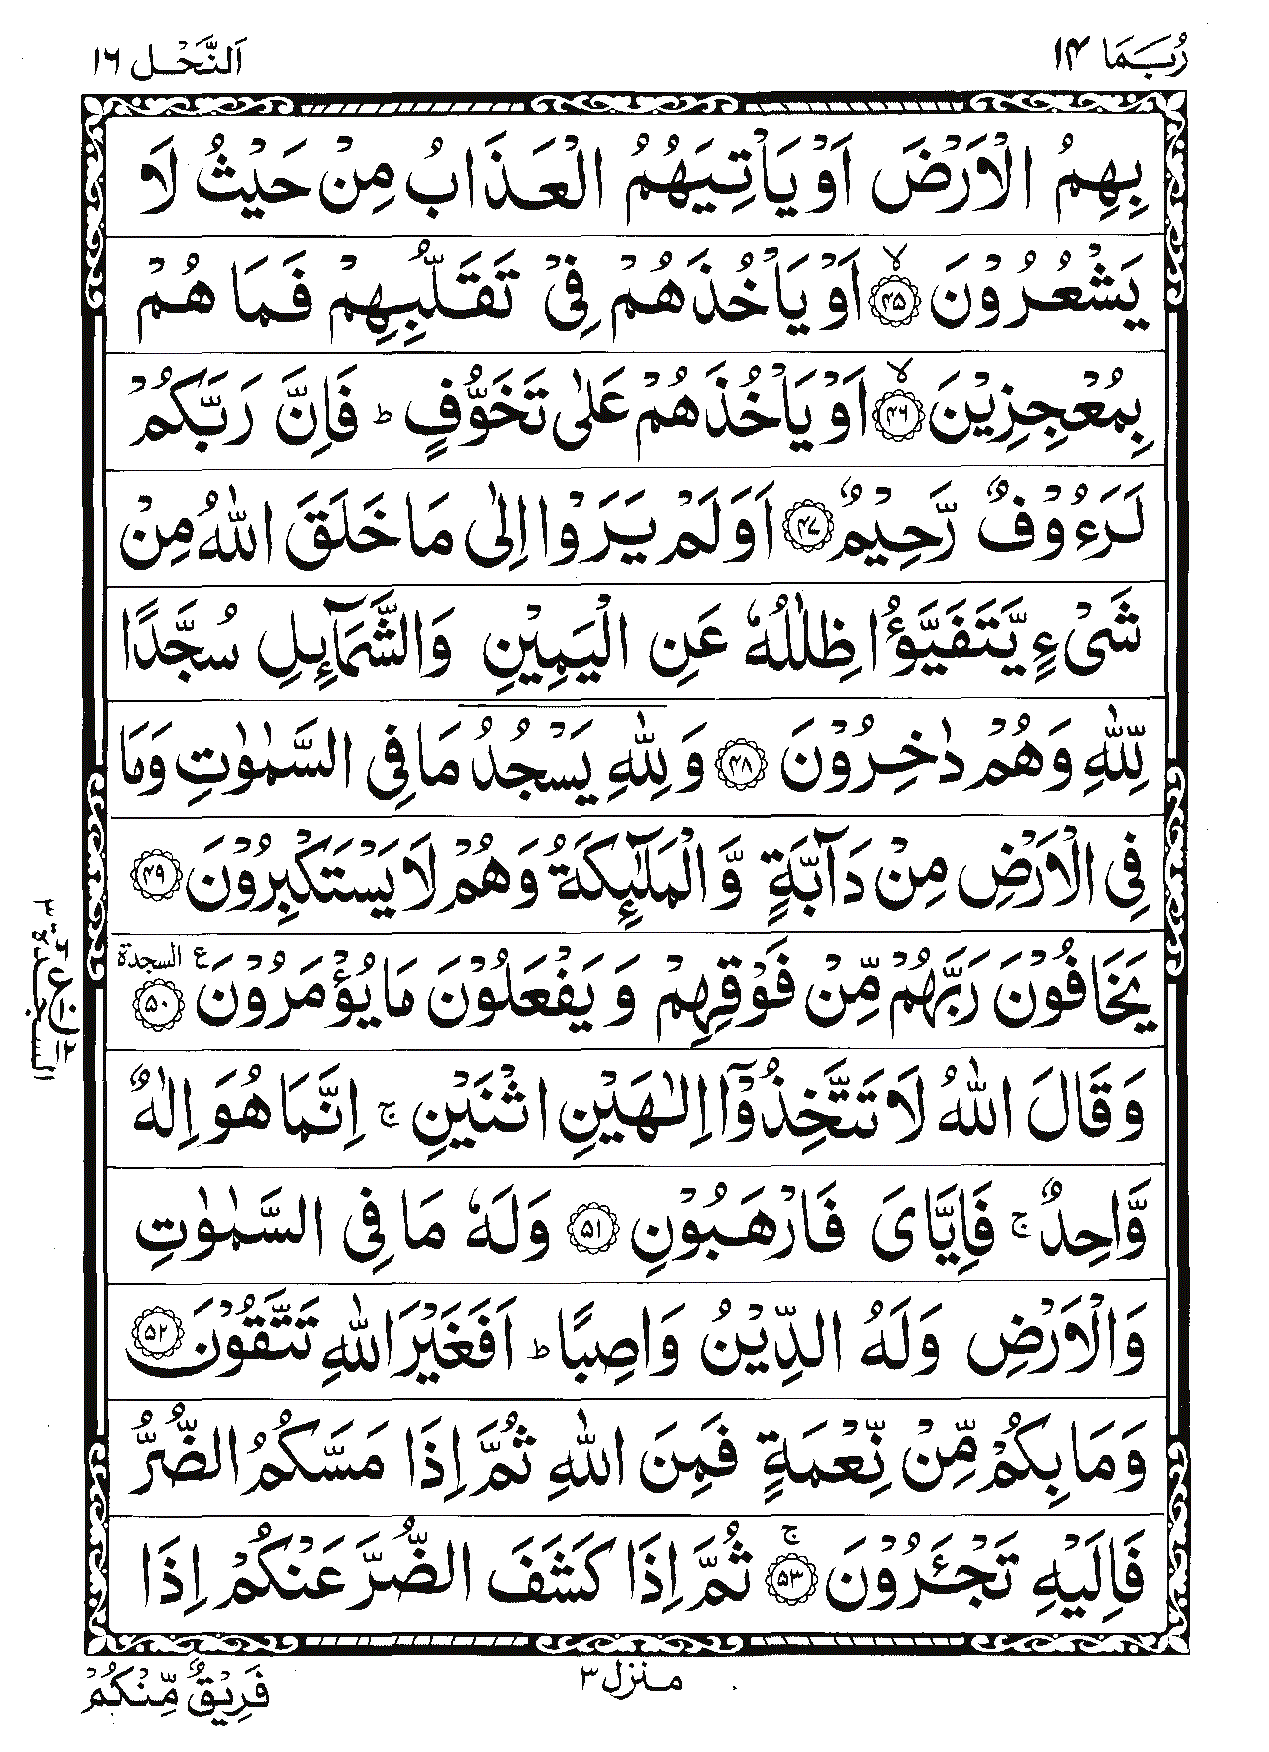 رُبَمَا ١٤
اَلنَّحْل ١٦
بِهِمُ الْاَرْضَ اَوْ يَاْتِيَهُمُ الْعَذَابُ مِنْ حَيْثُ لَا
يَشْعُرُوْنَ ﴿۴۵﴾ۙ اَوْ يَاْخُذَهُمْ فِىْ تَقَلُّبِهِمْ فَمَا هُمْ
بِمُعْجِزِيْنَ ﴿۴۶﴾ۙ اَوْ يَاْخُذَهُمْ عَلٰى تَخَوُّفٍ ؕ فَاِنَّ رَبَّكُمْ
لَرَءُوْفٌ رَّحِيْمٌ ﴿۴۷﴾ اَوَلَمْ يَرَوْا اِلٰى مَا خَلَقَ اللّٰهُ مِنْ
شَىْءٍ يَّتَفَيَّؤُا ظِلٰلُهٗ عَنِ الْيَمِيْنِ وَالشَّمَآئِلِ سُجَّدًا
لِّلّٰهِ وَهُمْ دٰخِرُوْنَ ﴿۴۸﴾ وَلِلّٰهِ يَسْجُدُ مَا فِى السَّمٰوٰتِ وَمَا
فِى الْاَرْضِ مِنْ دَآبَّةٍ وَّالْمَلٰٓئِكَةُ وَهُمْ لَا يَسْتَكْبِرُوْنَ ﴿۴۹﴾
يَخَافُوْنَ رَبَّهُمْ مِّنْ فَوْقِهِمْ وَيَفْعَلُوْنَ مَا يُؤْمَرُوْنَ ﴿۵۰﴾ ع السجدة
وَقَالَ اللّٰهُ لَا تَتَّخِذُوْٓا اِلٰهَيْنِ اثْنَيْنِ ۚ اِنَّمَا هُوَ اِلٰهٌ
وَّاحِدٌ ۚ فَاِيَّاىَ فَارْهَبُوْنِ ﴿۵۱﴾ وَلَهٗ مَا فِى السَّمٰوٰتِ
وَالْاَرْضِ وَلَهُ الدِّيْنُ وَاصِبًا ؕ اَفَغَيْرَ اللّٰهِ تَتَّقُوْنَ ﴿۵۲﴾
وَمَا بِكُمْ مِّنْ نِّعْمَةٍ فَمِنَ اللّٰهِ ثُمَّ اِذَا مَسَّكُمُ الضُّرُّ
فَاِلَيْهِ تَجْـَٔرُوْنَ ﴿۵۳﴾ۚ ثُمَّ اِذَا كَشَفَ الضُّرَّ عَنْكُمْ اِذَا
منزل ٣
فَرِيْقٌ مِّنْكُمْ